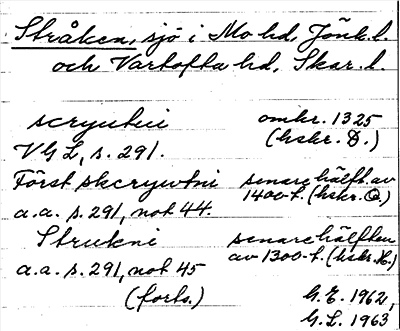 Stråken, sjö i Mo hd, Jönk.l.
och Vartofta hd, Skar.l.
scryutni omkr. 1325
VGL, s. 291. (hskr. D.)
Först skcrywtni senare hälft. av
a.a. s. 291, not 44. 1400-t. (hskr. Q)
Strukni senare hälften
a.a. s. 291, not 45 av 1300-t. (hskr. K.)
(forts.)
G.E. 1962,
G.L. 1963